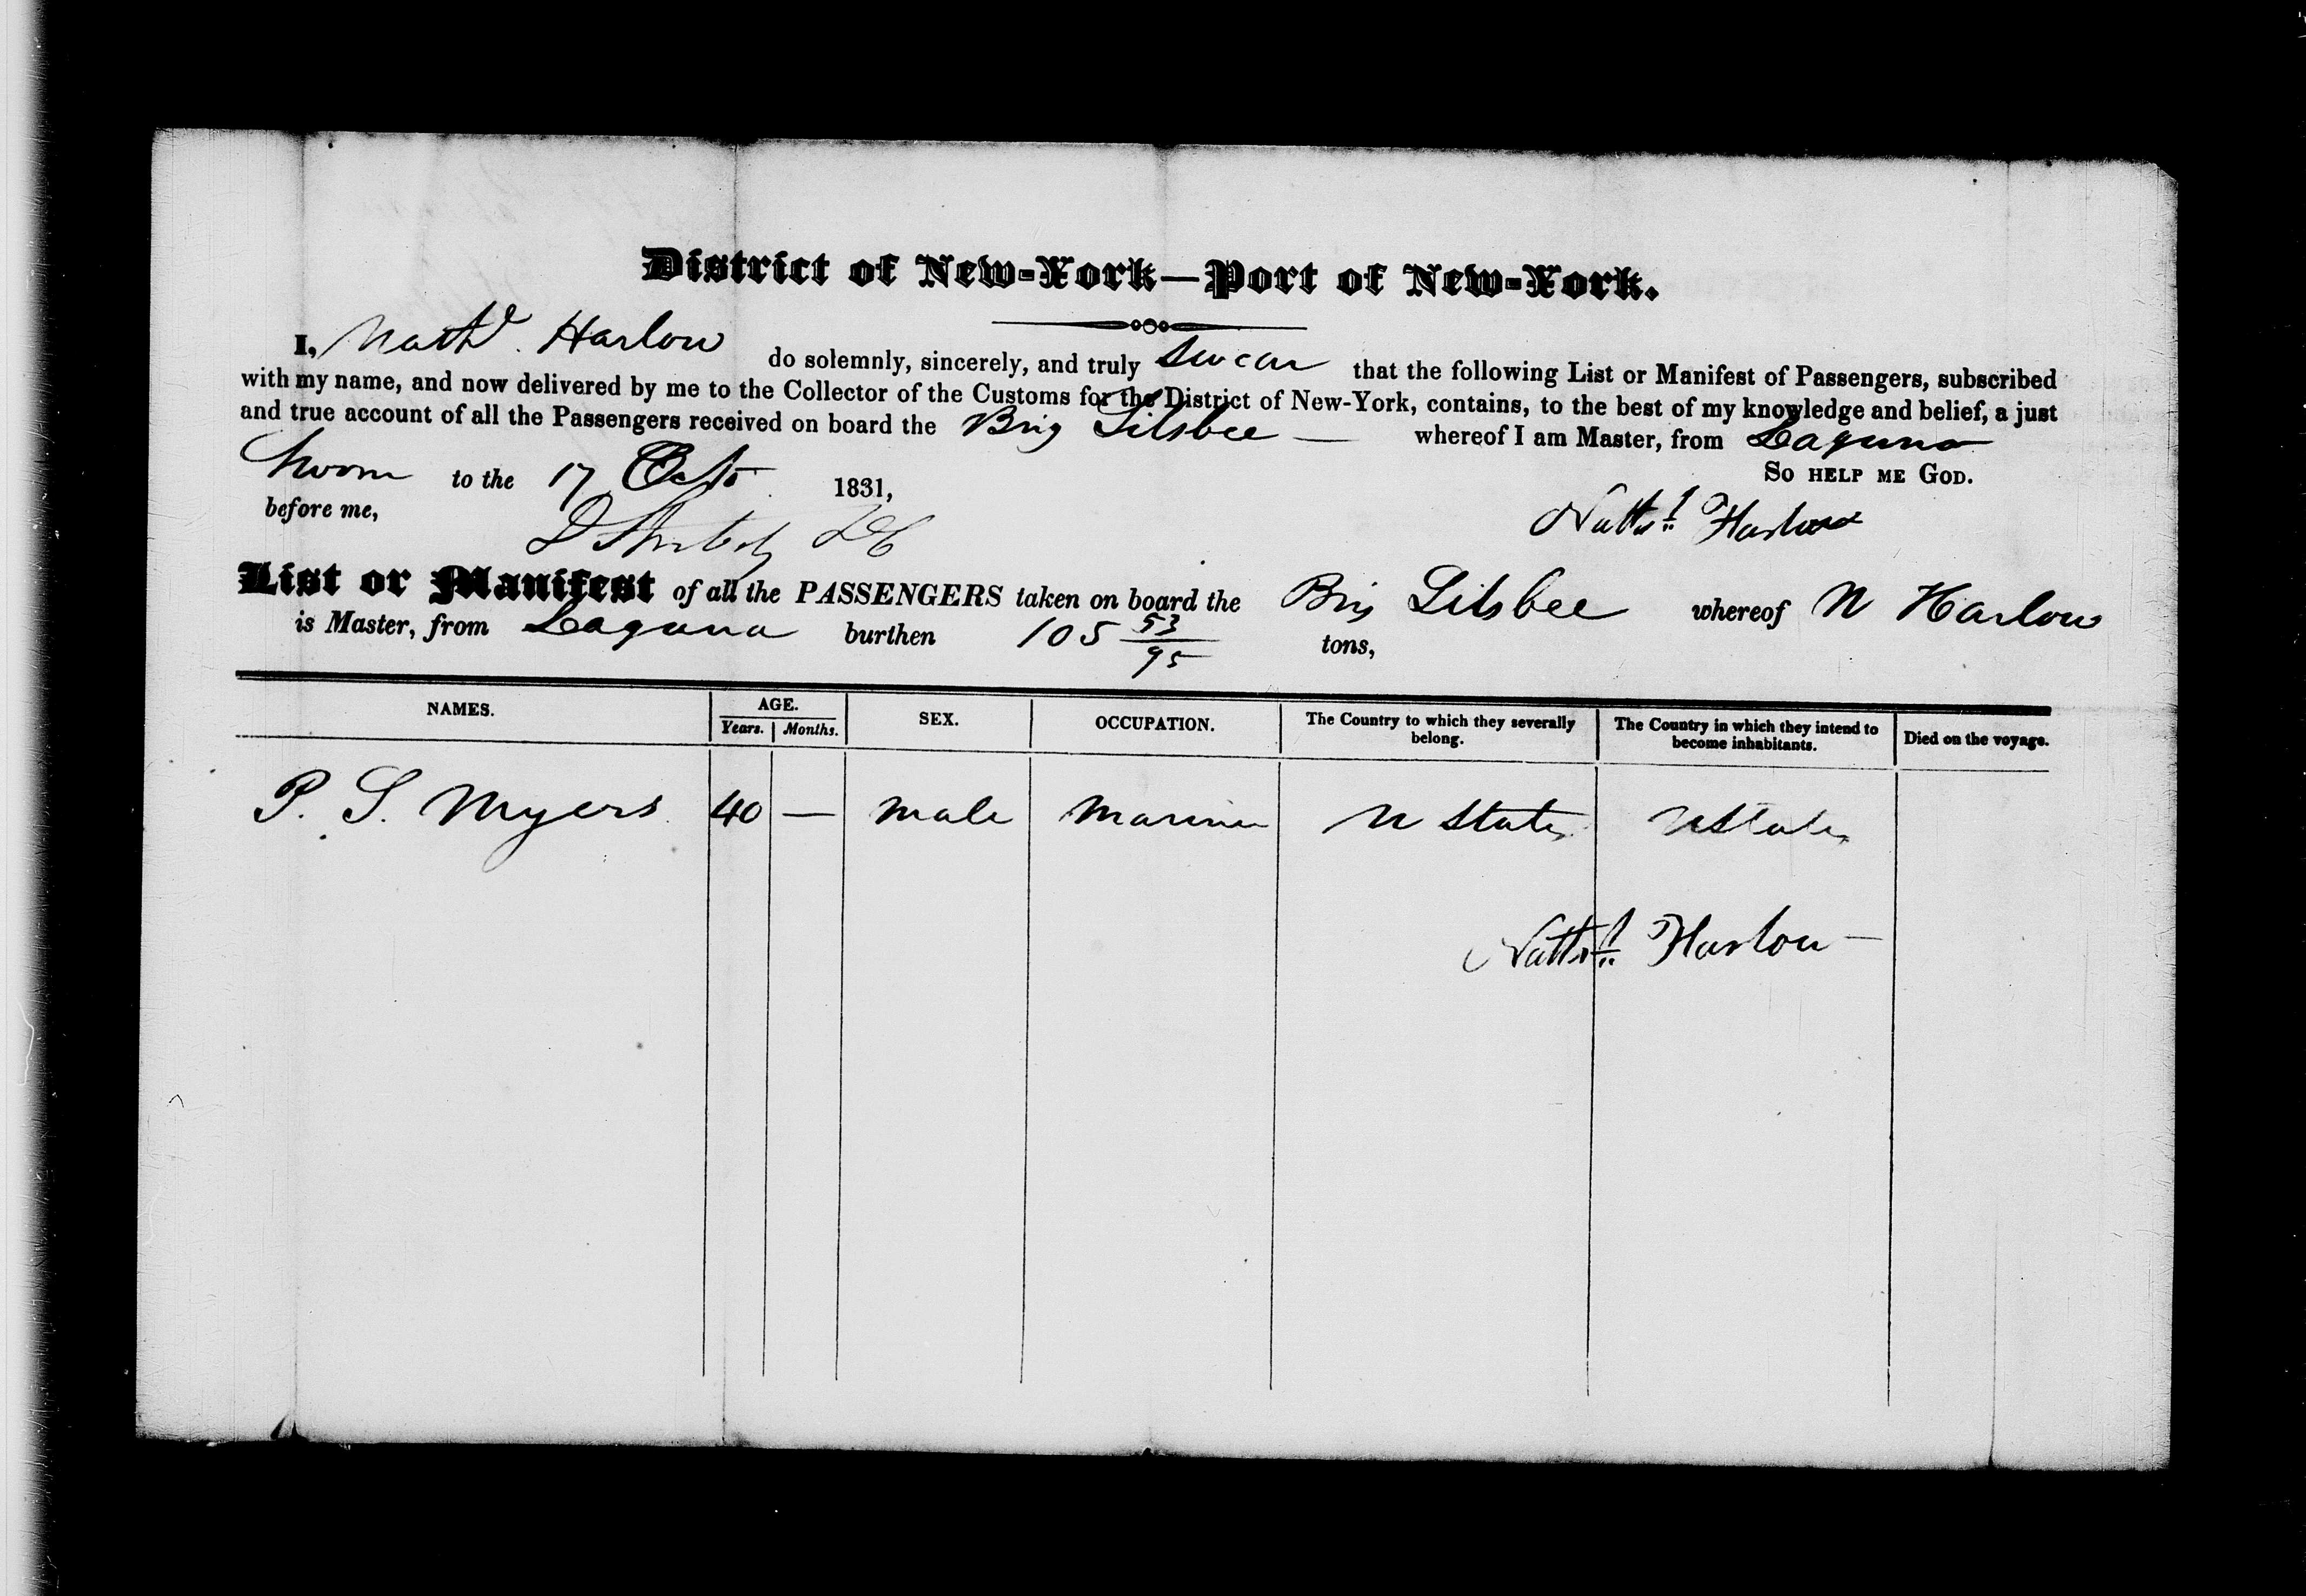 District of New-York—Port of New-York.
I, Nathl. Harlow do solemnly, sincerely, and truly swear that the following List or Manifest of Passengers, subscribed
with my name, and now delivered by me to the Collector of the Customs for the District of New-York, contains, to the best of my knowledge and belief, a just
and true account of all the Passengers received on board the Brig Silsbee — whereof I am Master, from Laguna
Sworn to the 17 Octo. 1831, So help me God.
before me, Nathl. Harlow
List or Manifest of all the PASSENGERS taken on board the Brig Silsbee whereof N Harlow
is Master, from Laguna burthen 105 53/95 tons,
NAMES. AGE. Years. Months. SEX. OCCUPATION. The Country to which they severally belong. The Country in which they intend to become inhabitants. Died on the voyage.
P. S. Myers 40 — male mariner U States U States
Nathl. Harlow —